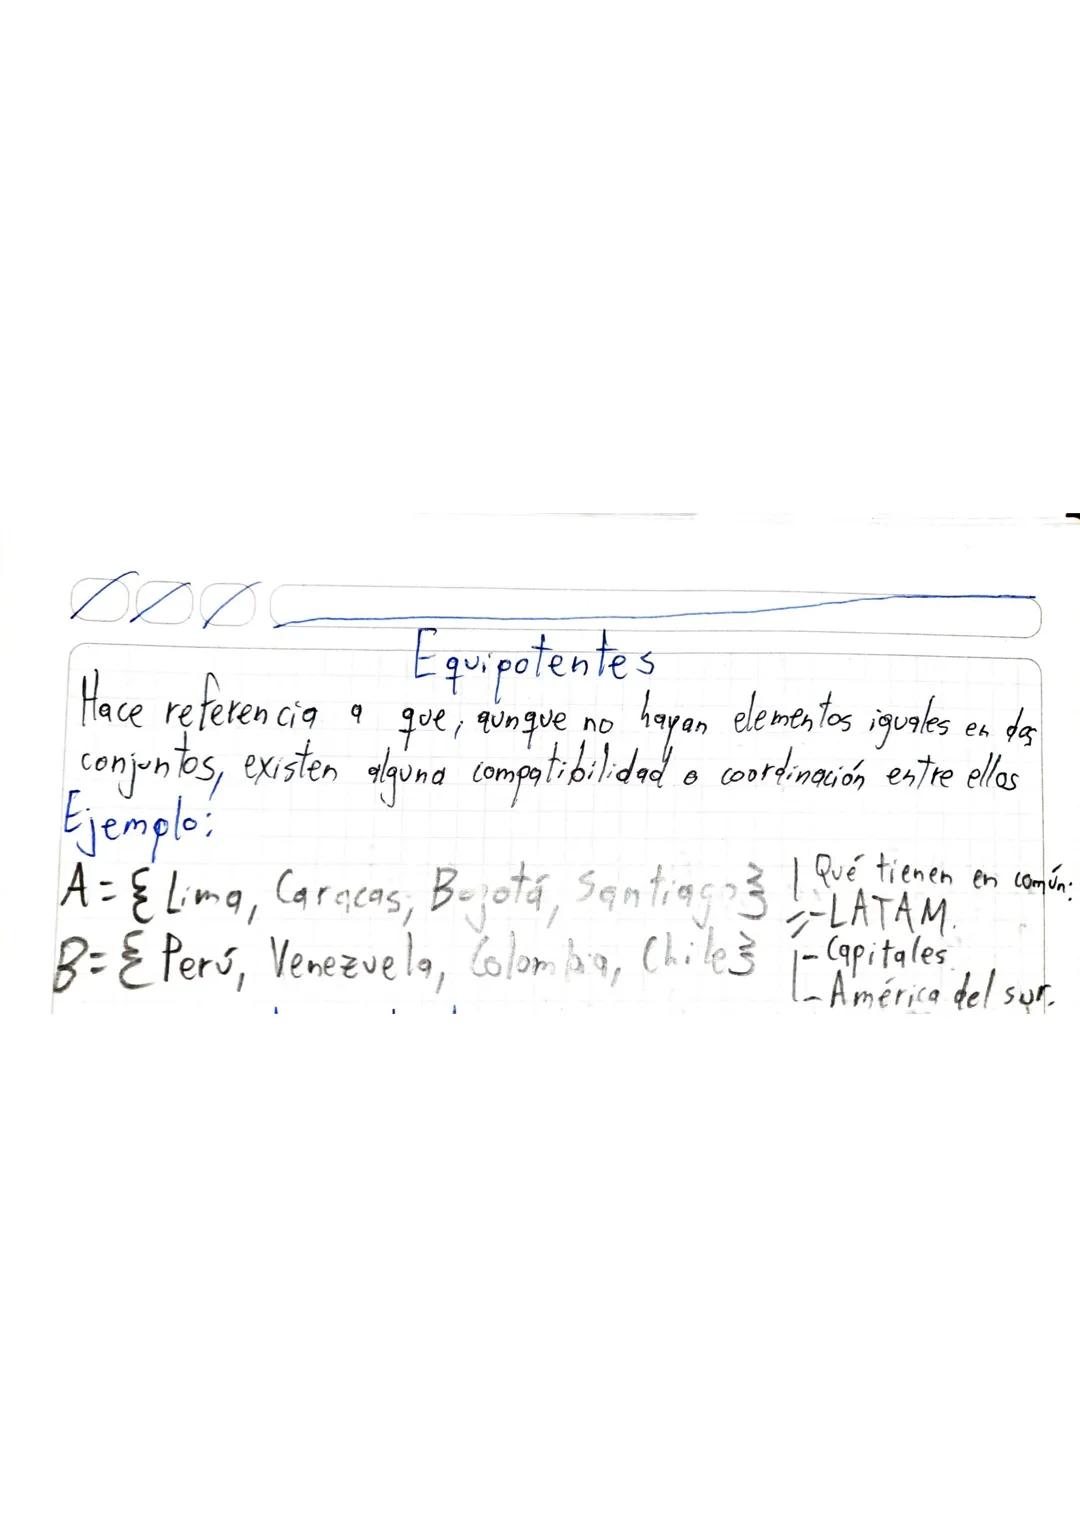 Equipotentes
Hace referencia a que, aunque no hayan elementos iguales en dos
conjuntos, existen alguna compatibilidad o coordinación entre ellos
Ejemplo:
A = { Lima, Caracas, Bogotá, Santiago }
B = { Perú, Venezuela, Colombia, Chile }
Qué tienen en común:
- LATAM.
- Capitales.
- América del sur.